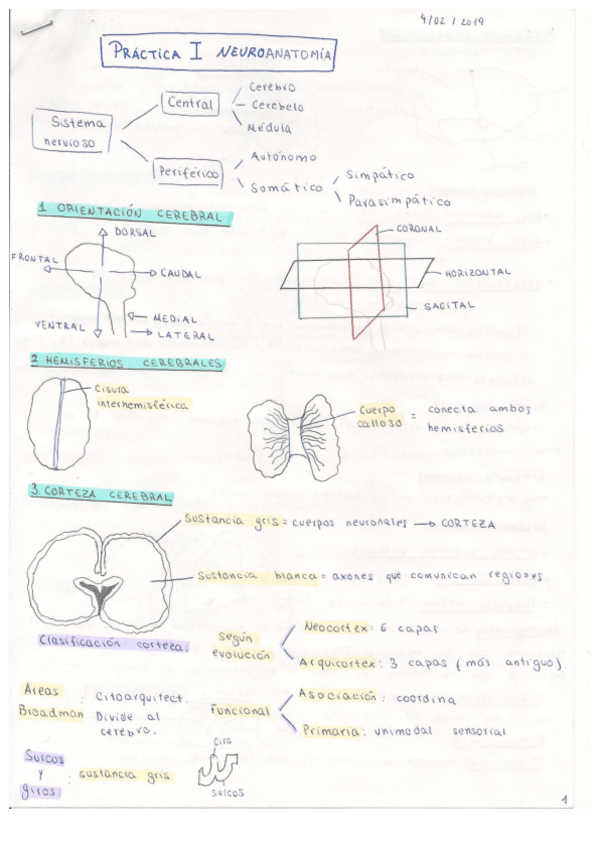 4/02/2019
PRÁCTICA I NEUROANATOMÍA
Sistema nervioso
Central
Cerebro
Cerebelo
Médula
Periférico
Autónomo
Somático
Simpático
Parasimpático
1. ORIENTACIÓN CEREBRAL
DORSAL
FRONTAL
CAUDAL
MEDIAL
VENTRAL
LATERAL
CORONAL
HORIZONTAL
SAGITAL
2. HEMISFERIOS CEREBRALES
Cisura
interhemisférica
Cuerpo
calloso = conecta ambos
hemisferios
3. CORTEZA CEREBRAL
Sustancia gris = cuerpos neuronales → CORTEZA
Sustancia blanca = axones que comunican regiones
Clasificación corteza:
Según
evolución
Neocortex: 6 capas
Arquicortex: 3 capas (más antiguo).
Áreas
Broadman : Citoarquitect.
Divide al
cerebro.
Funcional
Asociación: coordina
Primaria: unimodal sensorial
Surcos
y
giros : sustancia gris
Giro
surcos
1